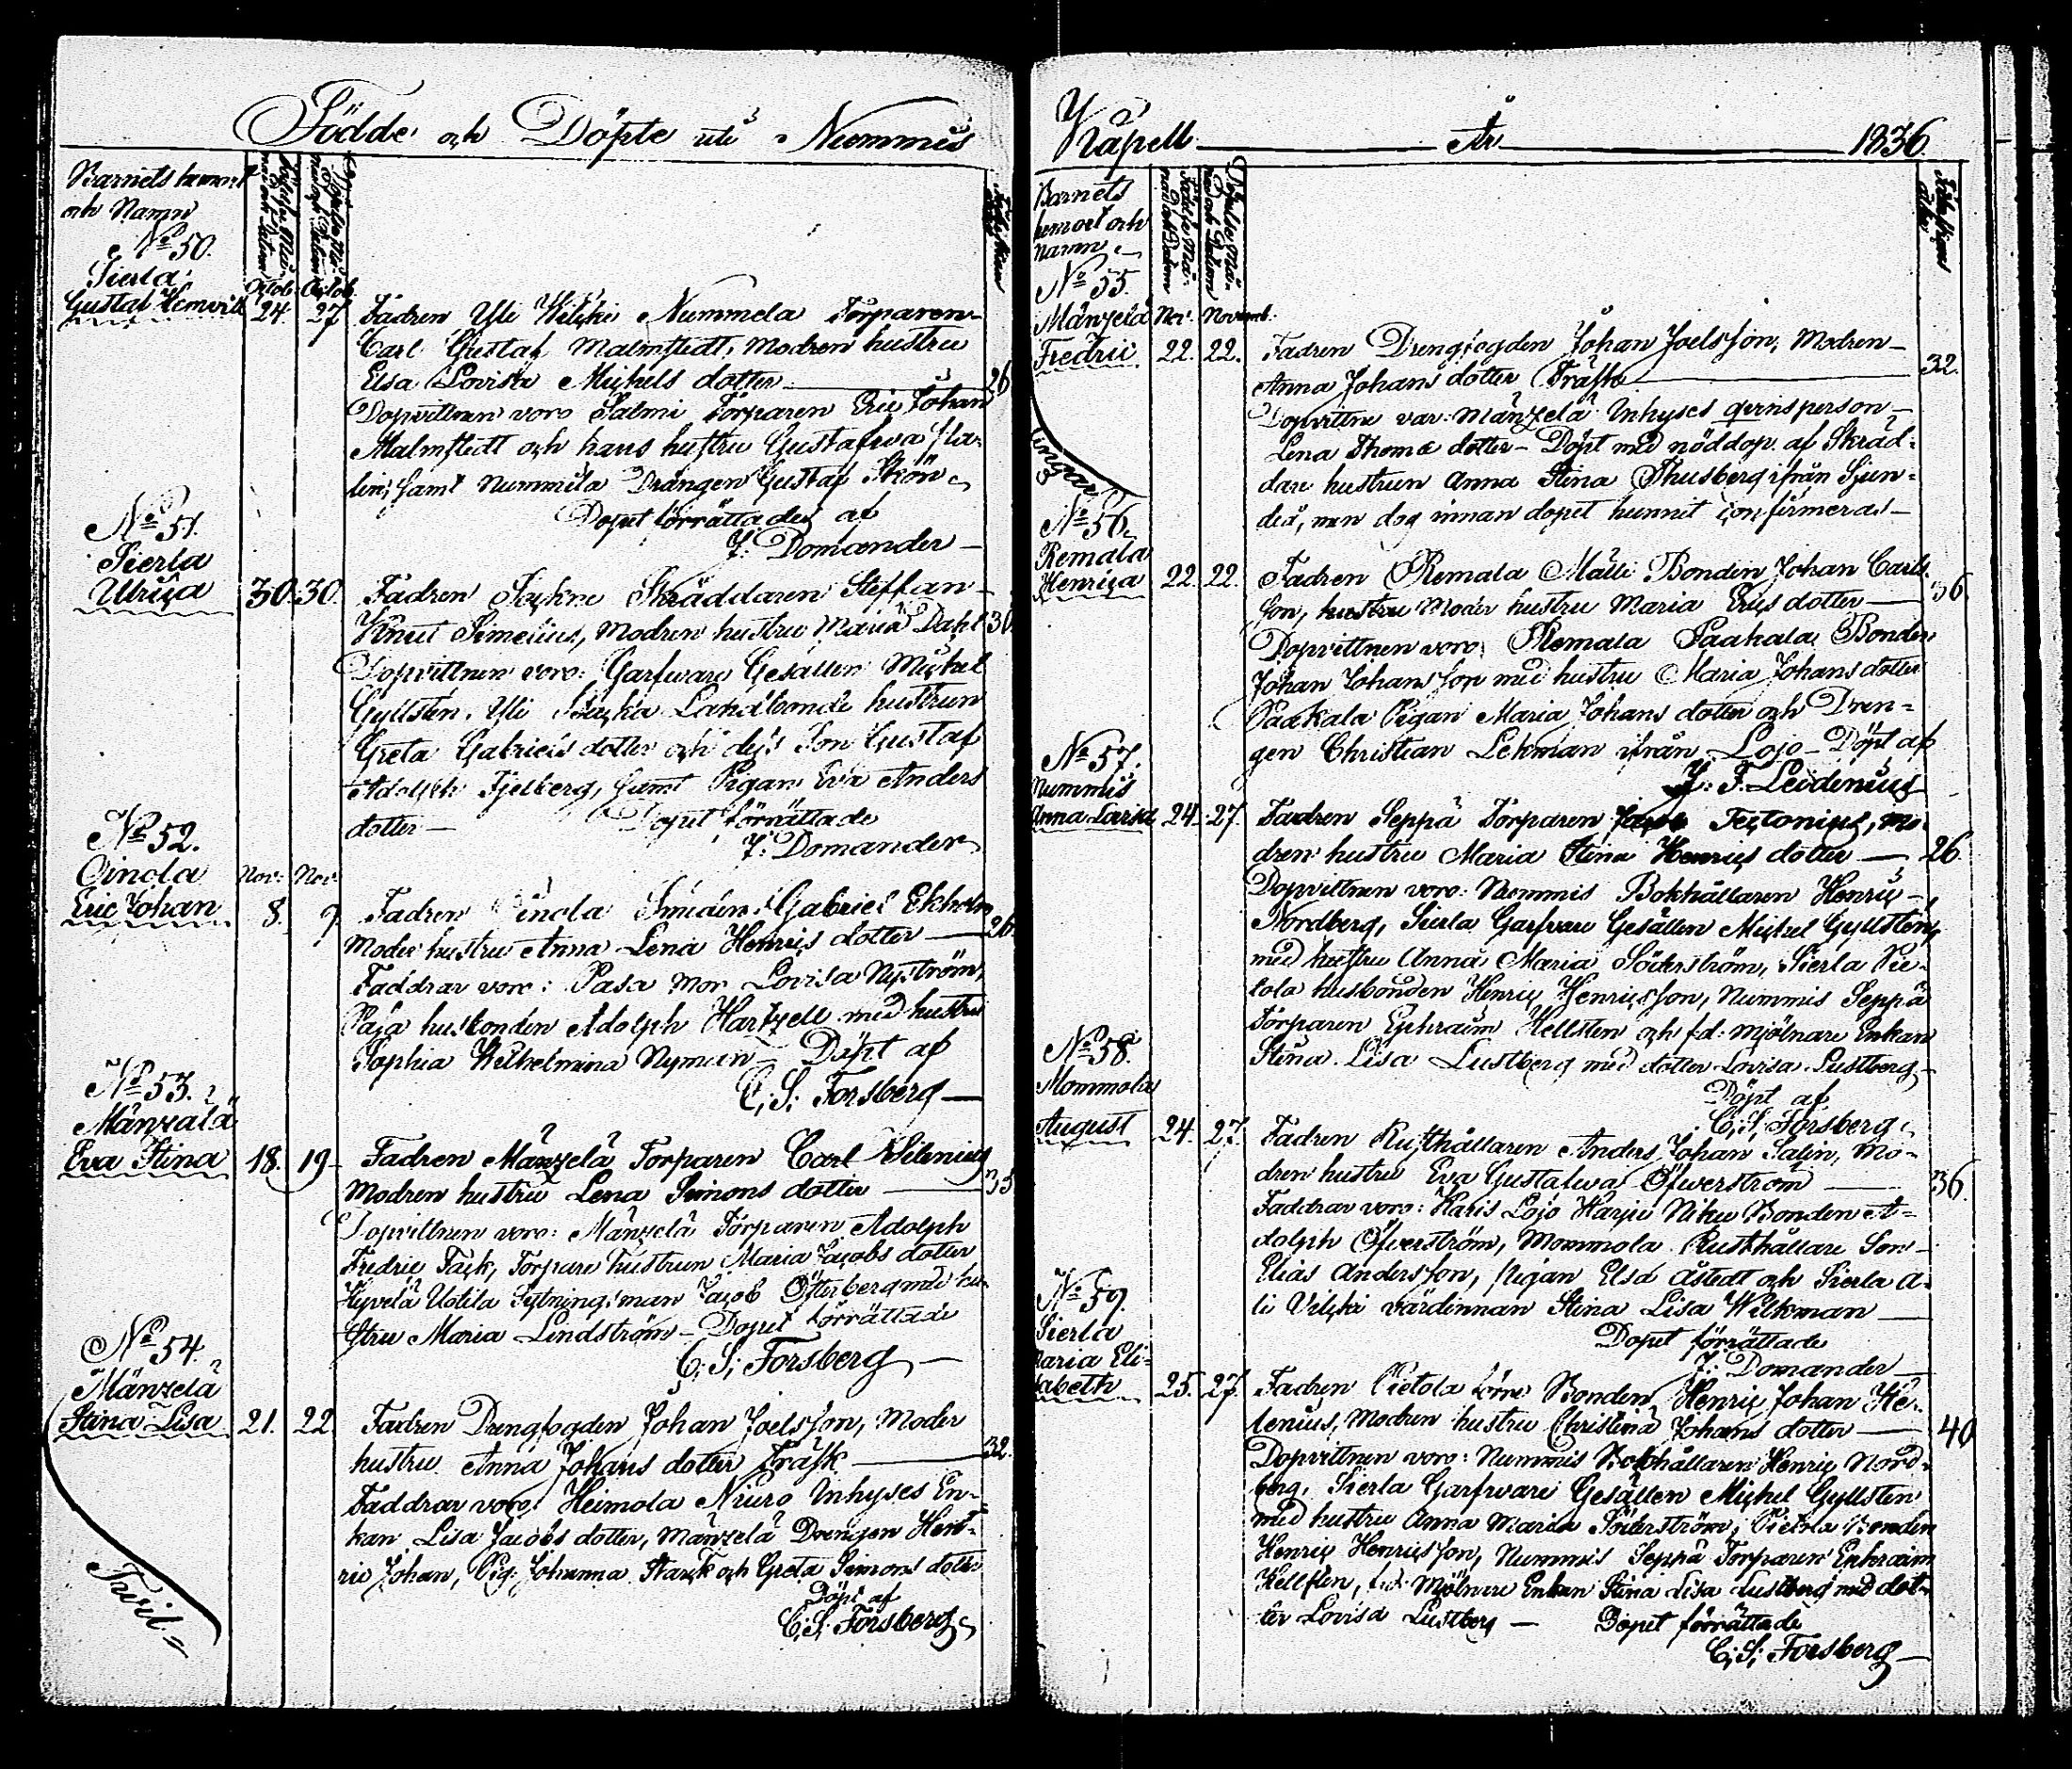 Födde och Döpte uti Nummis
Barnets hemort
och Namn
Födelse Månad och Datum
Döpelse Månad och Datum
No 50.
Sierla
Gustaf Henric
Octob. Octob.
24. 27
Fadren Yli Wilski Nummela Torparen
Carl Gustaf Malmstedt, Modren hustru
Elsa Lovisa Michels dotter 26
Dopvittnen voro Salmi Torparen Eric Johan
Malmstedt och hans hustru Gustafva
lin, samt Nummila Drängen Gustaf Skön
Dopet förrättades af
J: Domander
No 51.
Sierla
Ulrica 30. 30.
Fadren Skräddaren Steffan
Knut Simelius, Modren hustru Maria Dahl 30.
Dopvittnen voro: Garfvare Gesällen Michel
Gyllsten, Yli Landbonde hustrun
Greta Gabriels dotter och dess Son Gustaf
Adolph Fjelberg, samt Pigan Eva Anders
dotter Dopet förrättade
J: Domander
No 52.
Oinola Nov: Nov:
Eric Johan 8. 9
Fadren Oinola Smeden Gabriel Ekholm
Moder hustru Anna Lena Henrics dotter 26.
Faddrar voro: Pasa Mor Lovisa Nyström,
Paja husbonden Adolph Hartzell med hustru
Sophia Wilhelmina Nyman Döpt af
C: S: Forsberg
No 53.
Mänzälä
Eva Stina 18. 19
Fadren Mänzelä Torparen Carl Silenius
Modren hustru Lena Simons dotter 33
Dopvittnen voro: Mänzelä Torparen Adolph
Fredric Tack, Torpare hustrun Maria Jacobs dotter
Hyvelä Uotila Sytningsman Jacob Österberg med hu
stru Maria Lindström Dopet förrättade
C: S: Forsberg
No 54.
Mänzelä
Stina Lisa 21. 22
Fadren Drengfogden Johan Joelsson, Moder
hustru Anna Johans dotter Träsk 32.
Faddrar voro: Heimola Niuro Inhyses En-
kan Lisa Jacobs dotter, Mänzelä Drengen Hen-
ric Johan, Pig: Johanna Starck och Greta Simons dotter
Döpt af
C: S: Forsberg
Tvil=
Kapell År 1836
Barnets
hemort och
namn
Födelse Månad och Datum
Döpelse Månad och Datum
No 55.
Mänzelä Nov. Novemb:
Fredric 22. 22.
Fadren Drengfogden Johan Joelsson, Modren
Anna Johans dotter Träsk 32.
Dopvittne var Mänzelä Inhyses qvinsperson
Lena Thoma dotter Döpt med nöddop af Skräd=
dare hustrun Anna Stina Thusberg ifrån Sjun=
deå, men dog innan dopet hunnit confirmeras
lingar
No 56.
Remala
Henrica 22. 22.
Fadren Remala Mälli Bonden Johan Carls
son, hustru Moder hustru Maria Erics dotter 36
Dopvittnen voro, Remala Paakala Bonden
Johan Johansson med hustru Maria Johans dotter
Paakala Pigan Maria Johans dotter och Dren=
gen Christian Lekman ifrån Lojo Döpt af
J: F. Leidenius
No 57.
Nummis
Anna Lovisa 24. 27.
Fadren Seppä Torparen Tectonius, Mo
dren hustru Maria Stina Henrics dotter 26
Dopvittnen voro: Nummis Bokhållaren Henric
Nordberg, Sierla Garfvare Gesällen Michel Gyllsten
med hustru Anna Maria Söderström, Sierla Pie
tola husbonden Henric Henricsson, Nummis Seppä
Torparen Ephraim Hellsten och f.d: mjölnare Enkan
Stina Lisa Lustberg med dotter Lovisa Lustberg
Döpt af
C: S: Forsberg
No 58.
Mommola
August 24. 27.
Fadren Rusthållaren Anders Johan Salin, Mo-
dren hustru Eva Gustafva Öfverström 36.
Faddrar voro: Karis Lojo Harju Niku Bonden A=
dolph Öfverström, Mommola Rusthållare Son
Elias Andersson, pigan Elsa Åstedt och Sierla A-
li Vilski värdinnan Stina Lisa Wilkman
Dopet förrättade
J: Domander
No 59.
Sierla
Maria Eli=
sabeth 25. 27.
Fadren Pietola Bonden Henric Johan He-
lenius, Modren hustru Christina Johans dotter 40
Dopvittnen voro: Nummis Bokhållaren Henric Nord-
berg, Sierla Garfvare Gesällen Michel Gyllsten
med hustru Anna Maria Söderström, Pietola Bonden
Henric Henricsson, Nummis Seppä Torparen Ephraim
Hellsten, f.d. Mjölnare Enkan Stina Lisa Lustberg med dot-
ter Lovisa Lustberg Dopet förrättade
C: S: Forsberg